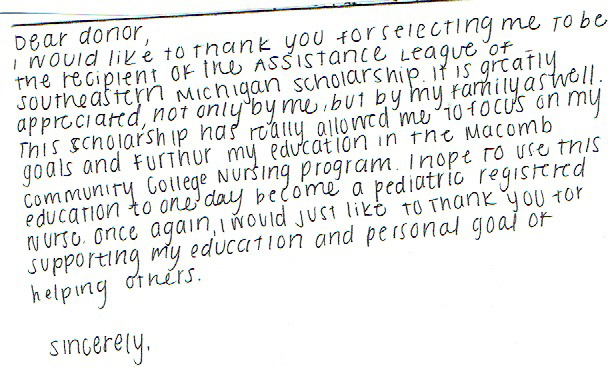 Dear donor,
I would like to thank you for selecting me to be
the recipient of the Assistance League of
Southeastern Michigan scholarship. It is greatly
appreciated, not only by me, but by my family as well.
This scholarship has really allowed me to focus on my
goals and furthur my education in the Macomb
Community College Nursing Program. I hope to use this
education to one day become a pediatric registered
nurse. Once again, I would just like to thank you for
supporting my education and personal goal of
helping others.
Sincerely,